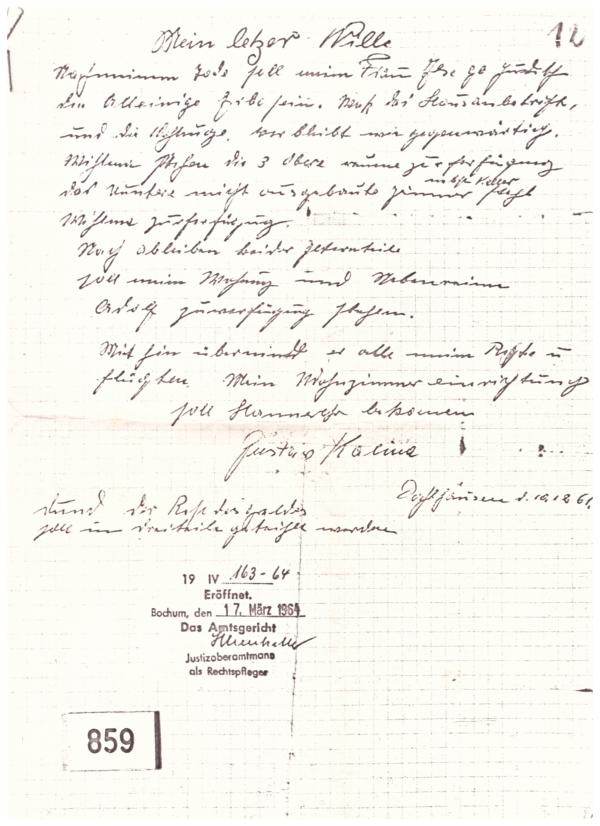 12
Mein letzer Wille
Nach meinem Tode soll meine Frau Else ge Judith
die Alleinige Erbe sein. Was das Hausanbetrifft,
und die verbleibt wie gegenwärtig.
Wihlma stehen die 3 Obere reume zur ferfügung
das Untere nicht ausgebaute zimmer steht
nebst Keller
Wihlma zur ferfügung.
Nach ableiben beider Elternteile
soll meine Wohung und Nebenreime
Adolf zuverfügung stehen.
Mit hin übernimdt er alle meine Rechte u
flichten. Mein Wohnzimmereinrichtung
soll bekomen
Gustav Kalina
Dahlhausen d. 10.12.61.
und der Rest des geldes
soll in dreiteile geteihlt werden
19 IV 163-64
Eröffnet.
Bochum, den 17. März 1964
Das Amtsgericht
Justizoberamtmann
als Rechtspfleger
859